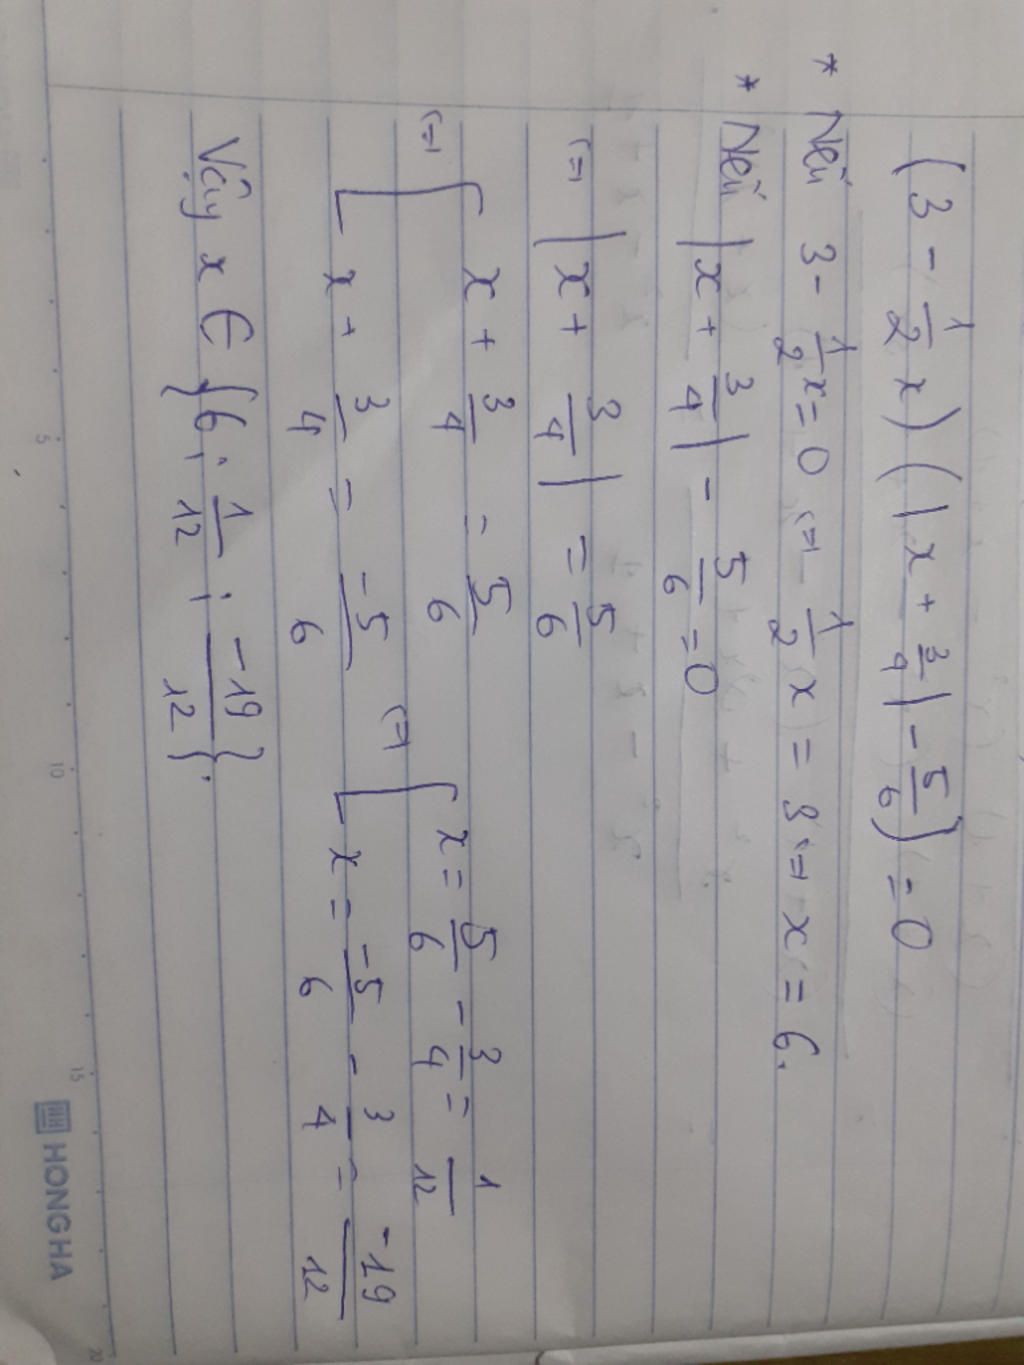 (3 - 1/2 x) (|x + 3/4| - 5/6) = 0
* Nếu 3 - 1/2 x = 0 (=) 1/2 x = 3 (=) x = 6.
* Nếu |x + 3/4| - 5/6 = 0
(=) |x + 3/4| = 5/6
(=) [ x + 3/4 = 5/6 (=) [ x = 5/6 - 3/4 = 1/12
x + 3/4 = -5/6 x = -5/6 - 3/4 = -19/12
Vậy x ∈ {6; 1/12; -19/12}.
5 10 15 20
HONG HA